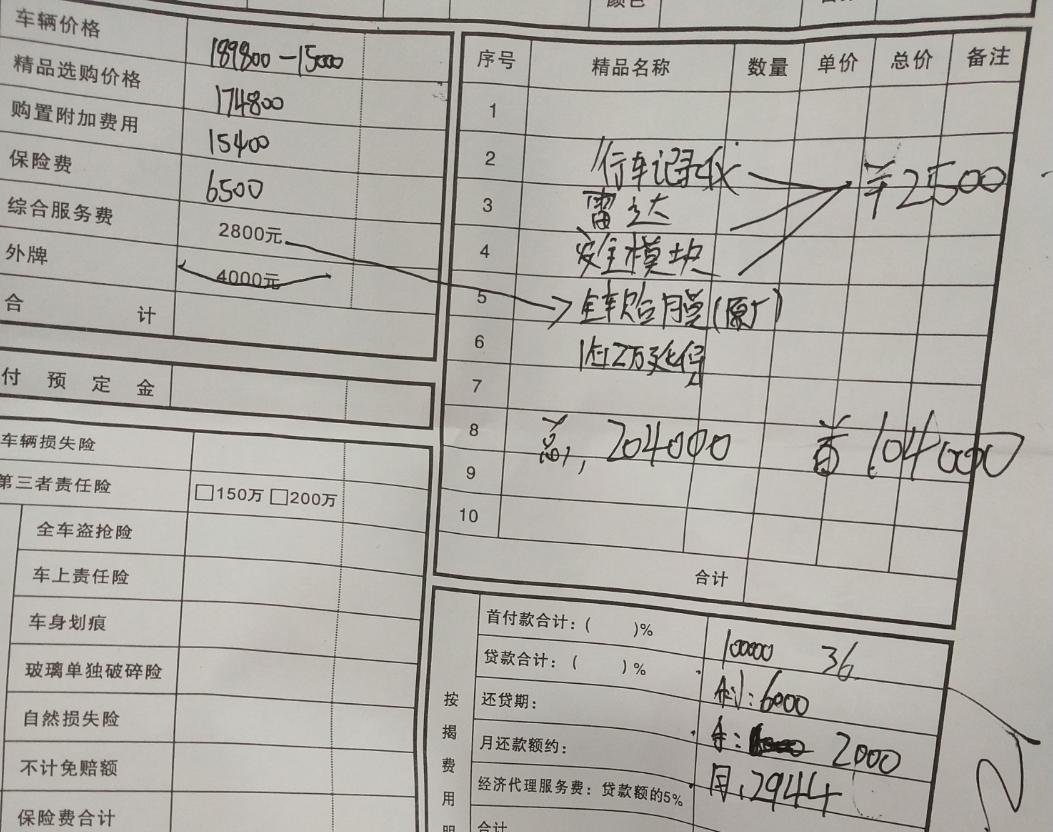 车辆价格 189800-15000
精品选购价格 174800
购置附加费用 15400
保险费 6500
综合服务费 2800元
外牌 4000元
合计
付预定金
车辆损失险
第三者责任险 □150万 □200万
全车盗抢险
车上责任险
车身划痕
玻璃单独破碎险
自然损失险
不计免赔额
保险费合计
序号 精品名称 数量 单价 总价 备注
1
2 行车记录仪 ¥2500
3 雷达
4 安全模块
5 全车贴膜(原厂)
6
7
8 总, 204000 首 104000
9
10
合计
按揭费用
首付款合计:( )%
贷款合计:( )% 100000 36
还贷期: 利:6000
月还款额约: 2000
经济代理服务费:贷款额的5% 月,2944
合计